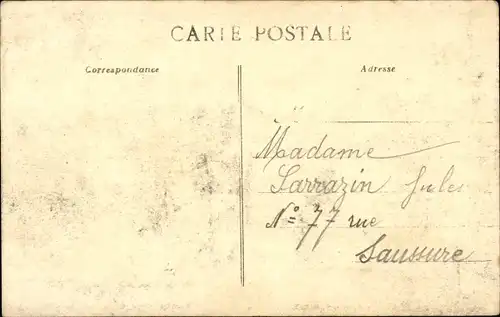 CARTE POSTALE
Correspondance
Adresse
Madame
Sarrazin Jules
Nº 77 rue
Saussure